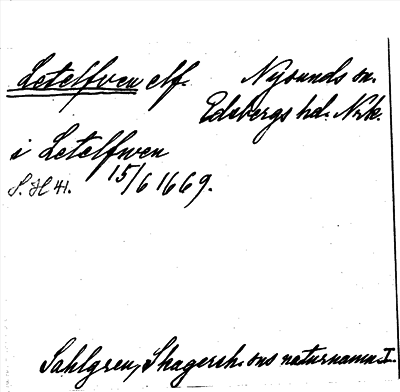 Letelfwen elf. Nysunds sn.
Edsbergs hd. Nrk.
i Letelfwen
S. H 41. 15/6 1669.
Sahlgren, Skagersh. sns naturnamn. I.